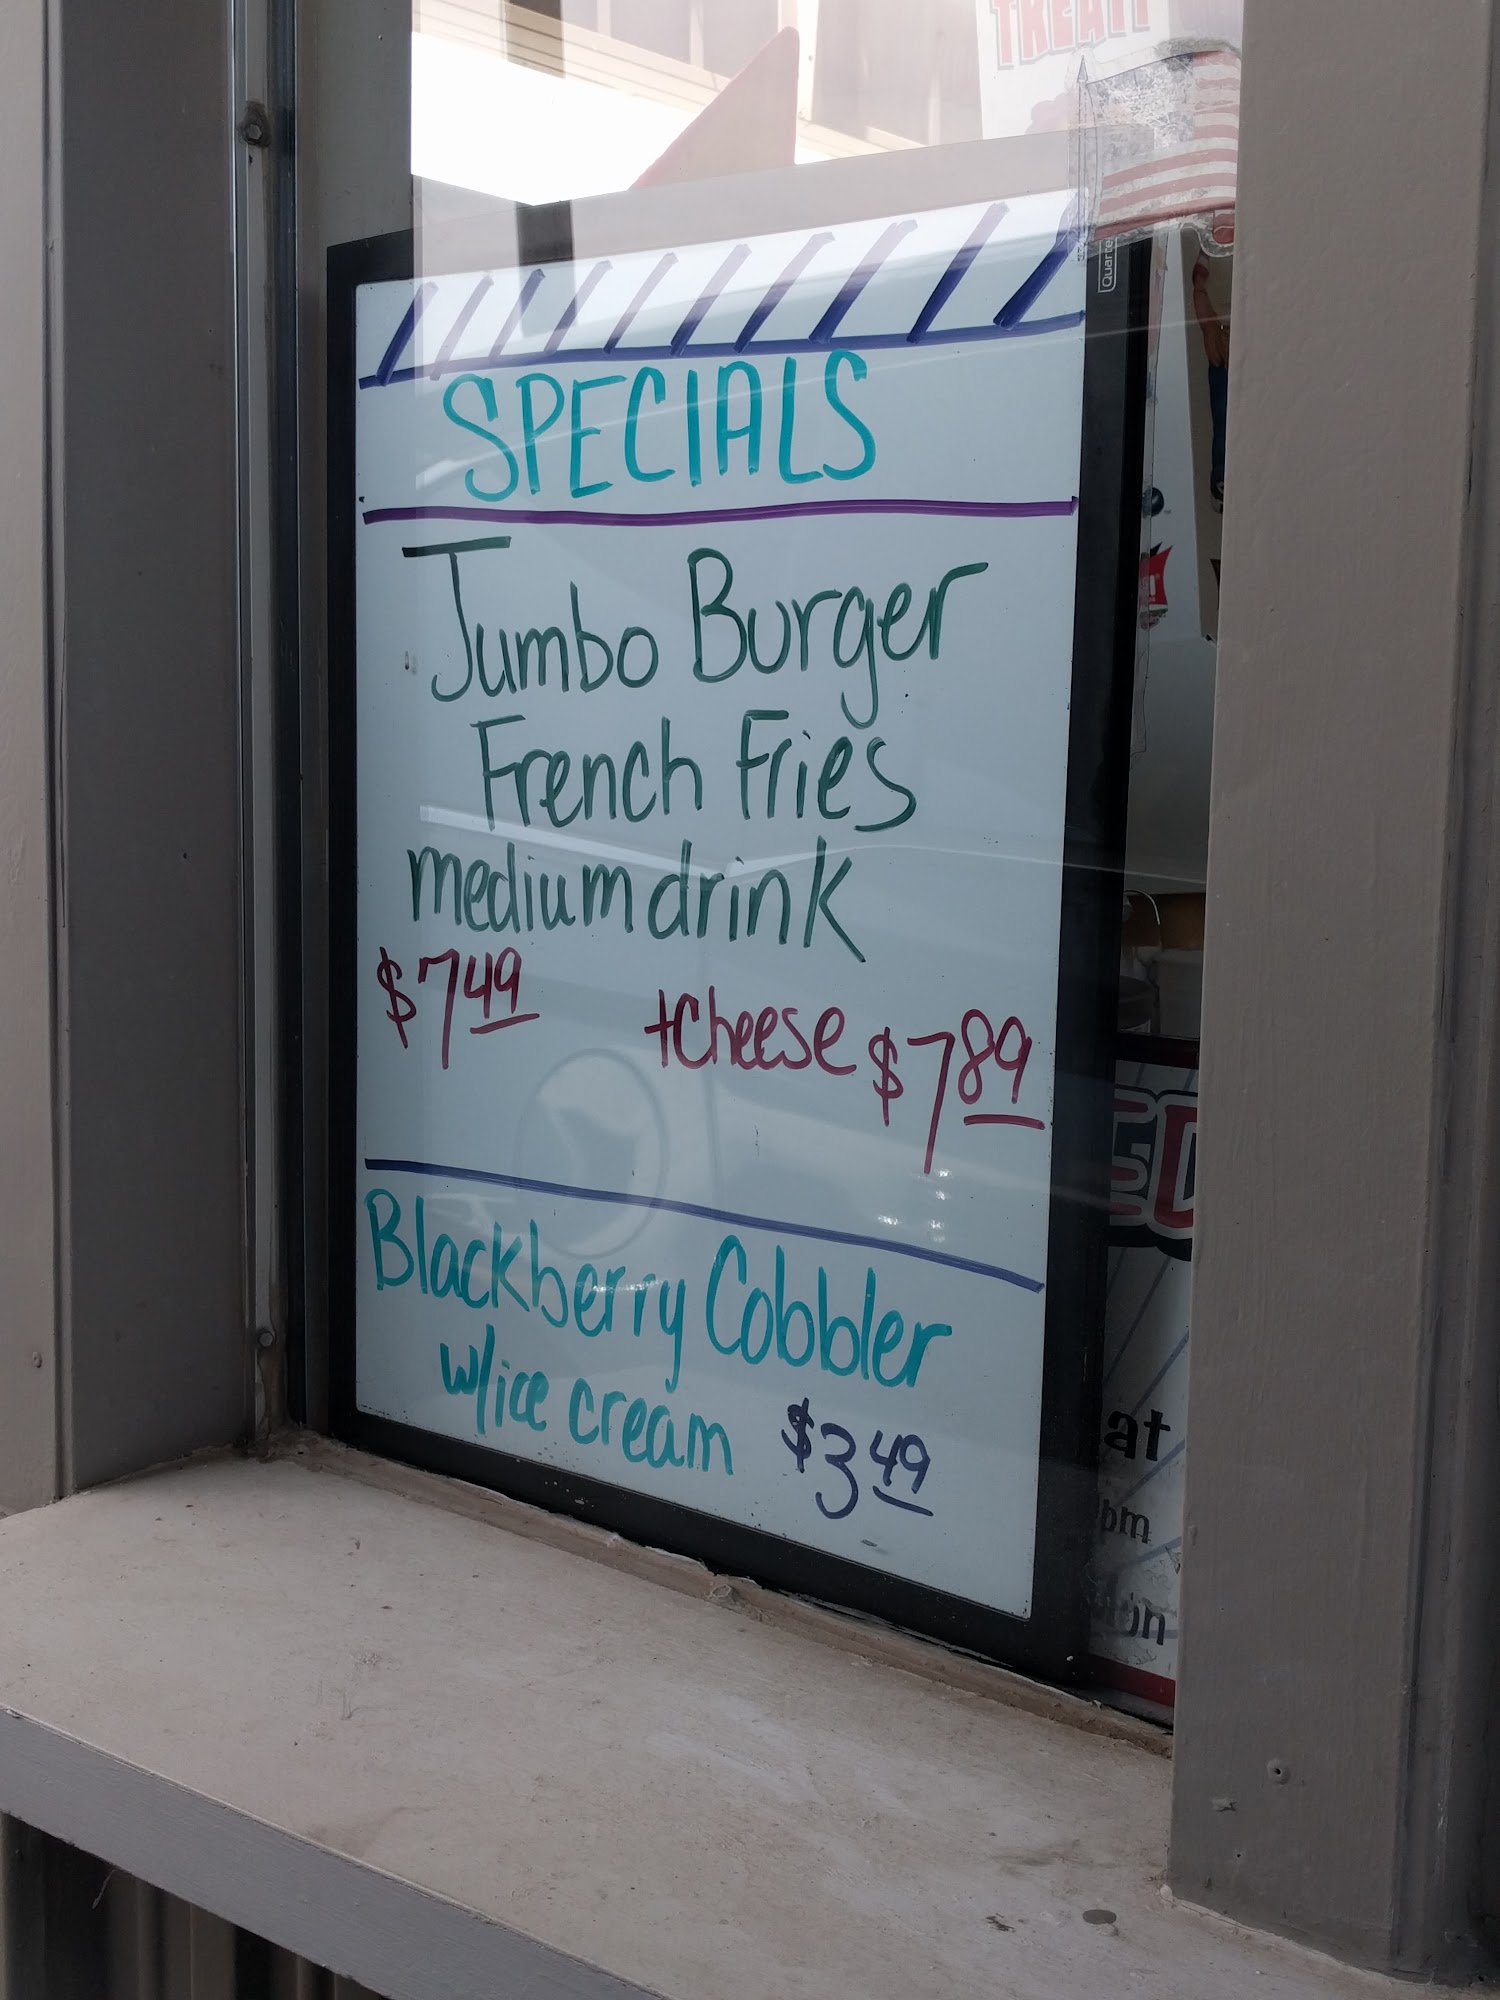 TREAT!
Quarte
SPECIALS
Jumbo Burger
French Fries
medium drink
$7 49 +Cheese $7 89
Blackberry Cobbler
w/ice cream $3 49
at